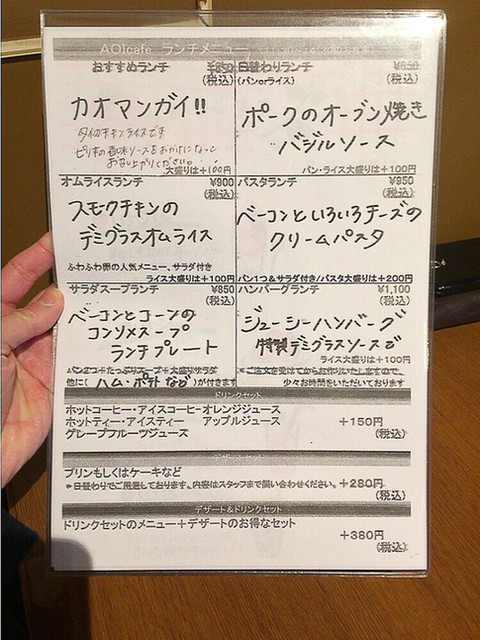 AOIcafe ランチメニュー
おすすめランチ ¥850
(税込)
カオマンガイ!!
タイのチキンライスです
ピリ辛の香味ソースをおかけになって
お召し上がりください。
大盛りは+100円
日替わりランチ ¥850
(パンorライス) (税込)
ポークのオーブン焼き
バジルソース
パン・ライス大盛りは+100円
オムライスランチ ¥900
(税込)
スモークチキンの
デミグラスオムライス
ふわふわ卵の人気メニュー、サラダ付き
ライス大盛りは+100円
パスタランチ ¥950
(税込)
ベーコンといろいろチーズの
クリームパスタ
パン1つ&サラダ付き/パスタ大盛り+200円
サラダスープランチ ¥850
(税込)
ベーコンとコーンの
コンソメスープ
ランチプレート
パン2コ+たっぷりスープ+大盛サラダ
他に(ハム・ポテトなど)が付きます
ハンバーグランチ ¥1,100
(税込)
ジューシーハンバーグ
特製デミグラスソースで
ライス大盛りは+100円
※ご注文を受けてからお作りいたしますので、
少々お時間をいただいております
ドリンクセット
ホットコーヒー・アイスコーヒーオレンジジュース
ホットティー・アイスティー アップルジュース +150円
グレープフルーツジュース (税込)
デザートセット
プリンもしくはケーキなど
※日替わりでご用意しております。内容はスタッフまで問い合わせください。 +280円
(税込)
デザート&ドリンクセット
ドリンクセットのメニュー+デザートのお得なセット
+380円
(税込)